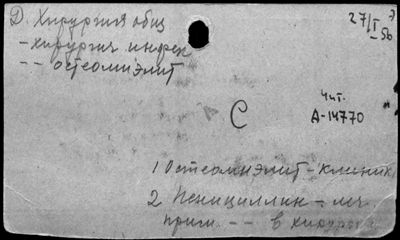 Д. Хирургия общ
27/I - 56
- хирургия инфек
- - остеомиэлит
Чит.
С
А-14770
1 Остеомиэлит - клиник
2 Пенициллин - леч.
прим. - - в хирургии